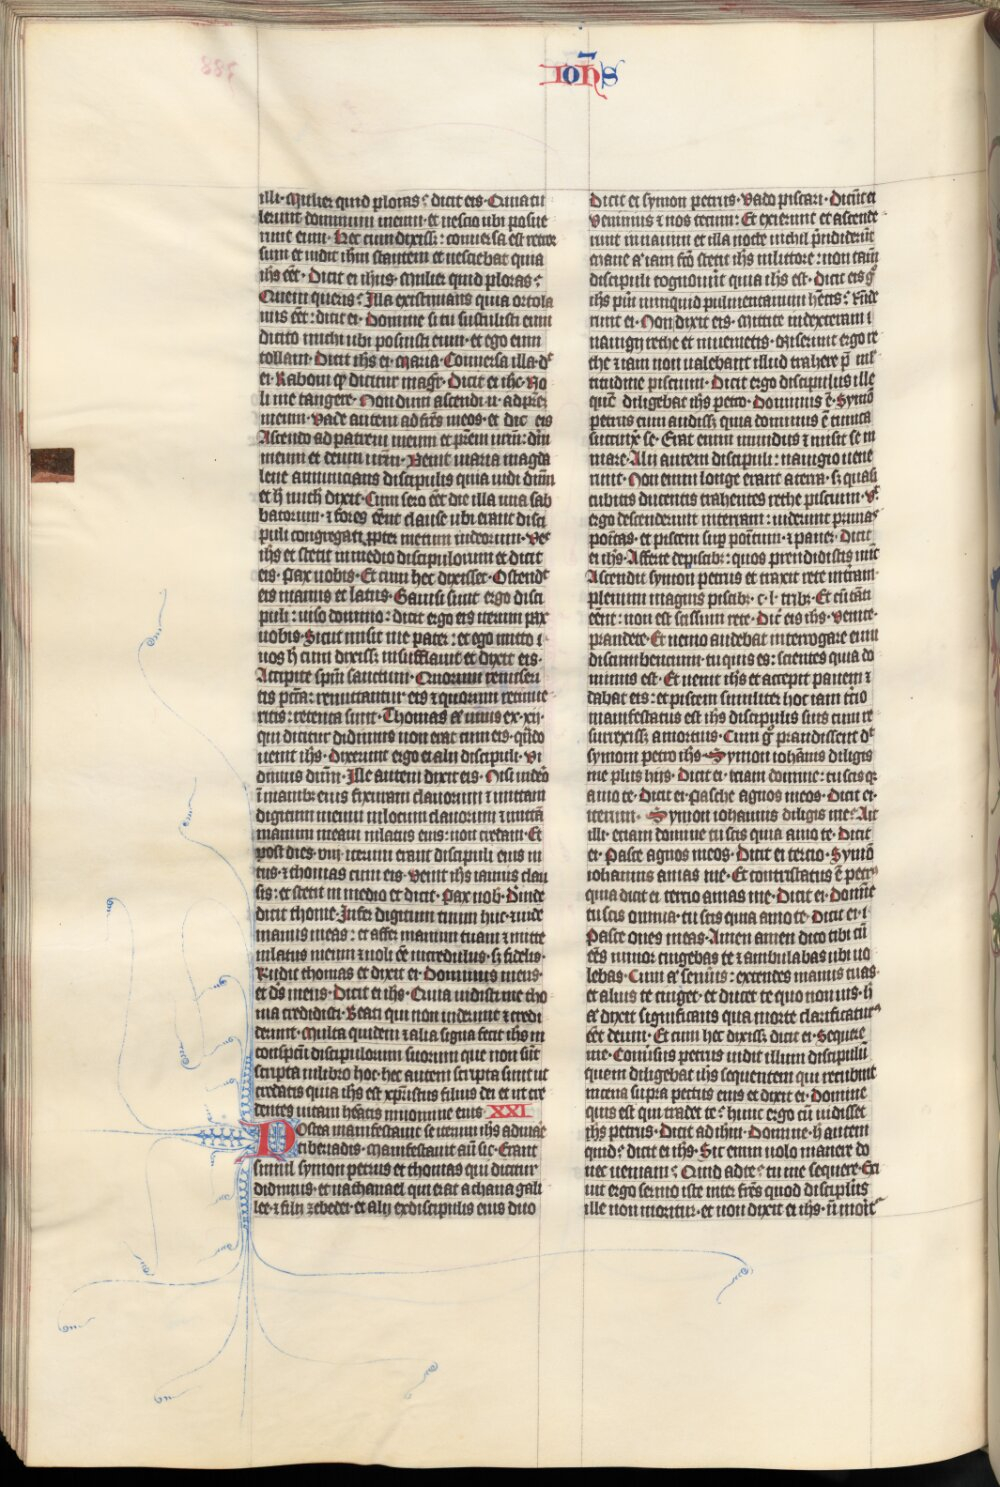 Ioh̄s
illi· Mulier quid ploras? dicit eis· Quia tu
lerunt dominum meum· et nescio ubi posue
runt eum· Hec cum dixiss; : conuersa est retror
sum et uidit ihm stantem et nesciebat quia
ihs eēt· Dicit ei ihus· Mulier quid ploras?
Quem queris? Illa existimans quia ortola
nus eēt: dicit ei· Domine si tu sustulisti eum
dicito michi ubi posuisti eum· et ego eum
tollam· Dicit ihs ei· Maria· Conuersa illa· dt
ei· Raboni qd dicitur magr̄· Dicit ei ihc· No
li me tangere· Non dum ascendi n̄ ad prēm
meum· Vade autem ad fr̄es meos· et dic eis
Ascendo ad patrem meum et prēm urm̄: dm̄
meum et deum urm̄· Venit maria magda
lene annuncians discipulis quia uidi dnm̄
et h̄ michi dixit· Cum sero eēt die illa una sab
batorum· ⁊ fores eēnt clause ubi erant disci
puli congregati ꝓpter metum iudeorum· Ve
ihs et stetit in medio discipulorum et dicit
eis· Pax uobis· Et cum hec dixisset· Ostend
eis manus et latus· Gauisi sunt ergo disci
puli: uiso domino: dicit ergo eis iterum pax
uobis· Sicut misit me pater: et ego mitto i·
uos h̄ cum dixiss; insufflauit et dixit eis·
Accipite spm̄ sanctum· Quorum remiseri
tis pcc̄a: remittantur eis ⁊ quorum retinue
ritis: retenta sunt· Thomas āt unus ex· xij·
qui dicitur didimus non erat cum eis· qn̄do
uenit ihs· Dixerunt ergo ei alij discipuli· Vi
dimus dnm̄· Ille autem dixit eis· Nisi uidēo
ī manib; eius fixuram clauorum ⁊ mittam
digitum meum in locum clauorum ⁊ mittā
manum meam in latus eius: non credam· Et
post dies· viij· iterum erant discipuli eius in
tus· ⁊ thomas cum eis· Venit ihs ianuis clau
sis: et stetit in medio et dixit· Pax uob̄· Deinde
dicit thome· Infer digitum tuum huc· ⁊ uide
manus meas: et affer manum tuam ⁊ mitte
in latus meum ⁊ noli eē incredulus· s; fidelis·
Rn̄dit thomas et dixit ei· Dominus meus·
et ds̄ meus· Dicit ei ihs· Quia uidisti me tho
ma credidisti· Beati qui non uiderunt ⁊ credi
derunt· Multa quidem ⁊ alia signa fecit ihs in
conspcū discipulorum suorum que non sūt
scripta in libro hoc· hec autem scripta sunt ut
credatis quia ihs est xp̄istus filius dei et ut cre
dentes uitam heātis in nomine eius XXI
Postea manifestauit se iterum ihs ad mare
tiberiadis· Manifestauit aūt sic· Erant
simul symon petrus et thomas qui dicitur
didimus· et nathanael qui erat a chana gali
lee· ⁊ filij zebedei· et alij ex discipulis eius duo
Dicit ei symon petrus· Vado piscari· Dicūt ei
Venimus ⁊ nos tecum: Et exierunt et ascende
runt in nauim et illa nocte nichil p̄ndiderūt
mane āt iam fcō stetit ihs in litore: non tam̄
discipuli cognouerūt quia ihs est· Dicit eis g°
ihs pueri numquid pulmentarium heētis? Rn̄de
runt ei· Non dixit eis· Mittite in dexteram i
nauigij rethe et inuenietis· Miserunt ergo re
the ⁊ iam non ualebant illud trahere p̄ ml
titudine piscium· Dicit ergo discipulus ille
quē diligebat ihs petro· Dominus ē· Symō
petrus cum audiss; quia dominus ē tunica
succinx̄ se· Erat enim nundus ⁊ misit se in
mare· Alij autem discipuli: nauigio uene
runt· Non enim longe erant a terra· s; quasi
cubitis ducentis trahentes rethe piscium· Vt
ergo descenderunt in terram: uiderunt prunas
poītas· et piscem sup̄ poītum· ⁊ panē· Dicit
ei ihs· Afferte de piscib;: quos prendidistis nūc
Ascendit symon petrus et traxit rete in t̄ram·
plenum magnis piscib;· c· l· trib;· Et cū tāti
eēnt: non est scissum rete· Dic̄ eis ihs· Venite·
prandete· Et nemo audebat interrogare eum
discumbentium· tu quis es: scientes quia do
minus est· Et uenit ihs et accepit panem ⁊
dabat eis: et piscem similiter hoc iam tr̄cio
manifestatus est ihs discipulis suis cum re
surrexiss; a mortuis· Cum g° prandissent dt
symoni petro ihs· Symon iohannis diligis
me plus hijs· Dicit ei· etiam domine: tu scis q;
amo te· Dicit ei· Pasche agnos meos· Dicit ei·
iterum· Symon iohannis diligis me? Ait
illi· etiam domine tu scis quia amo te· Dicit
ei· Pasce agnos meos· Dicit ei tercio· Symō
iohannis amas me· Et contristatus ē petrus
quia dicit ei tercio amas me· Dicit ei· Domīe
tu scis omnia· tu scis quia amo te· Dicit ei· i
Pasce oues meas· Amen amen dico tibi cū
eēs iunior cingebas te ⁊ ambulabas ubi uo
lebas· Cum āt senuīs: extendes manus tuas·
et alius te cinget· et ducet te quo non uis· h̄
āt dixit significans qua morte clarificaturus
eēt deum· Et cum hec dixiss; dicit ei· Sequere
me· Conuisus petrus uidit illum discipulū
quem diligebat ihs sequentem qui recubuit
in cena supra pectus eius et dixit ei· Domine
quis est qui tradet te? hunc ergo cū uidisset
ihs petrus· Dicit ad ihm̄· Domine· h̄ autem
quid? dicit ei ihs· Sic eum uolo manere do
nec ueniam? Quid ad te? tu me sequere· Exi
uit ergo sermo iste inter fr̄es quod discipulus
ille non moritur· et non dixit ei ihs· n̄ morit̄